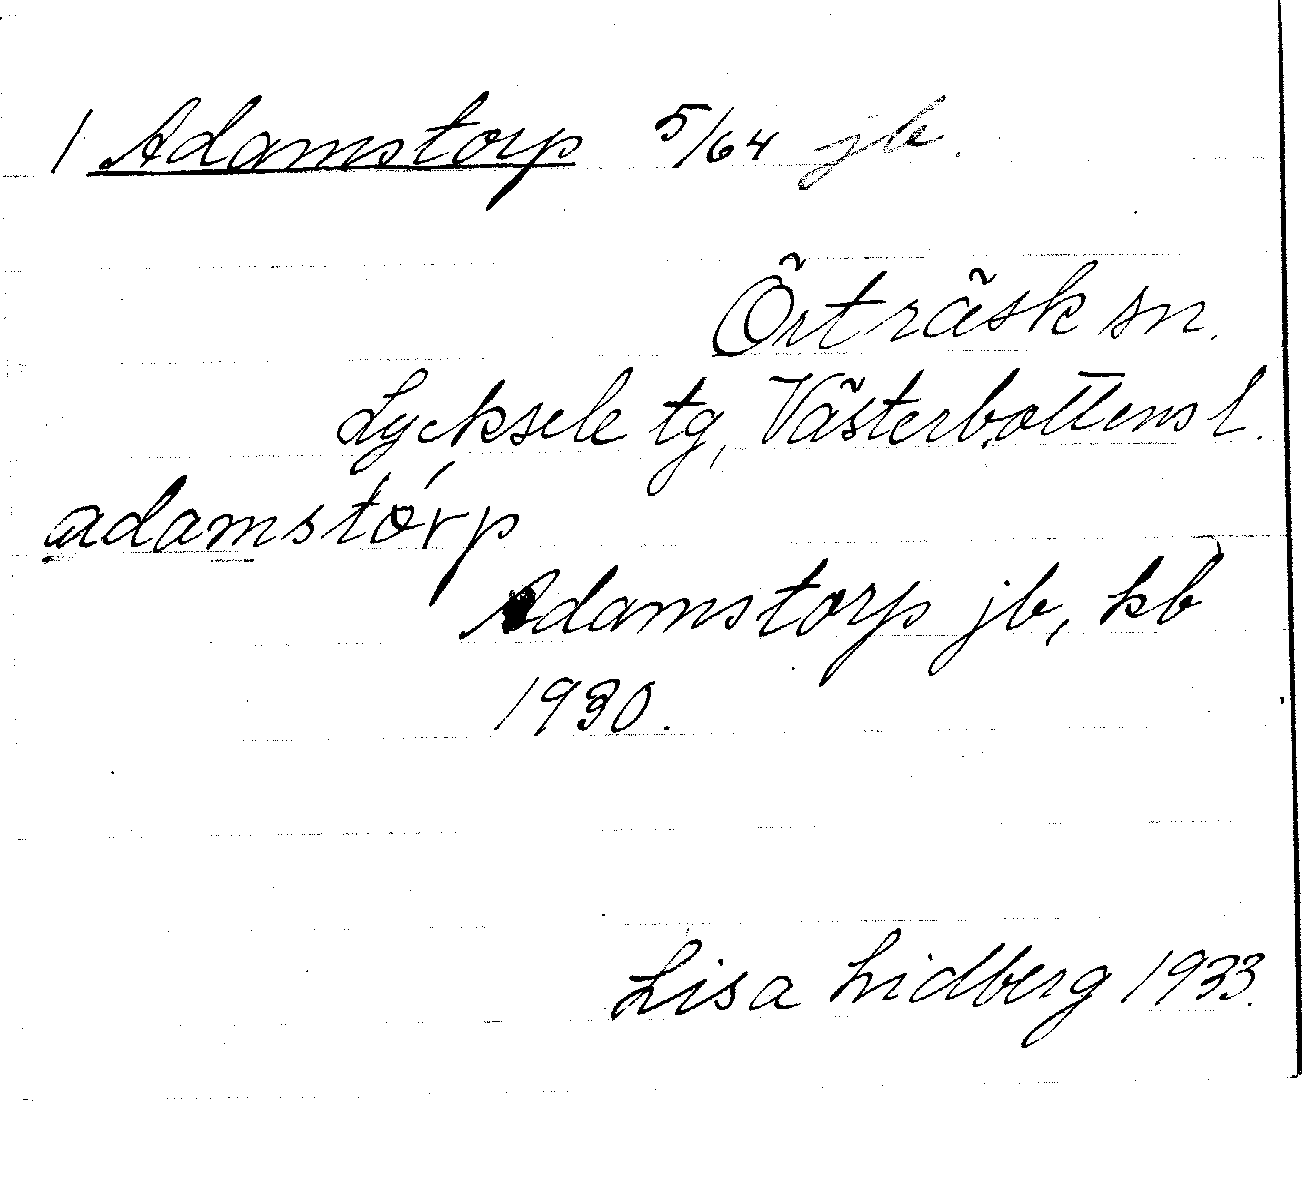 1 Adamstorp 5/64 jb.
Örträsk sn.
Lycksele tg, Västerbottens l.
adamstórp
Adamstorp jb, kb
1930.
Lisa Lidberg 1933.